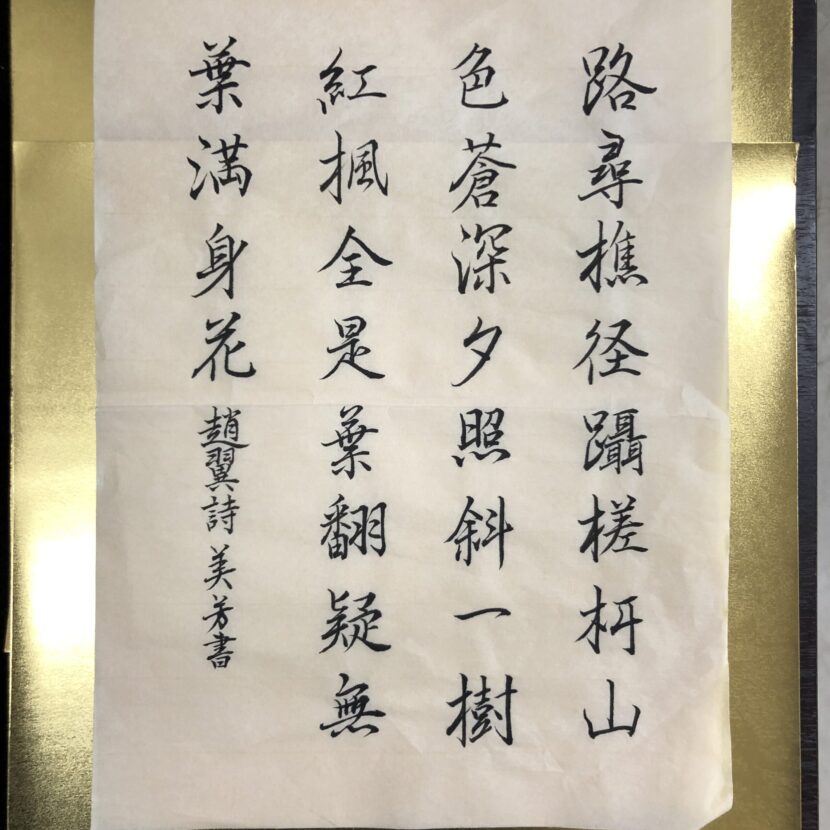 路尋樵径躡槎枒山
色蒼深夕照斜一樹
紅楓全是葉翻疑無
葉満身花 趙翼詩 美芳書